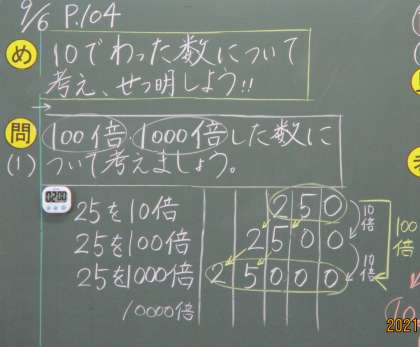 9/6 P.104
め 10でわった数について
考え、せつ明しよう!!
問 100倍、1000倍した数に
(1) ついて考えましょう。
02:00
25を10倍 250
25を100倍 2500
25を1000倍 25000
10000倍
10倍
10倍
100倍
2021